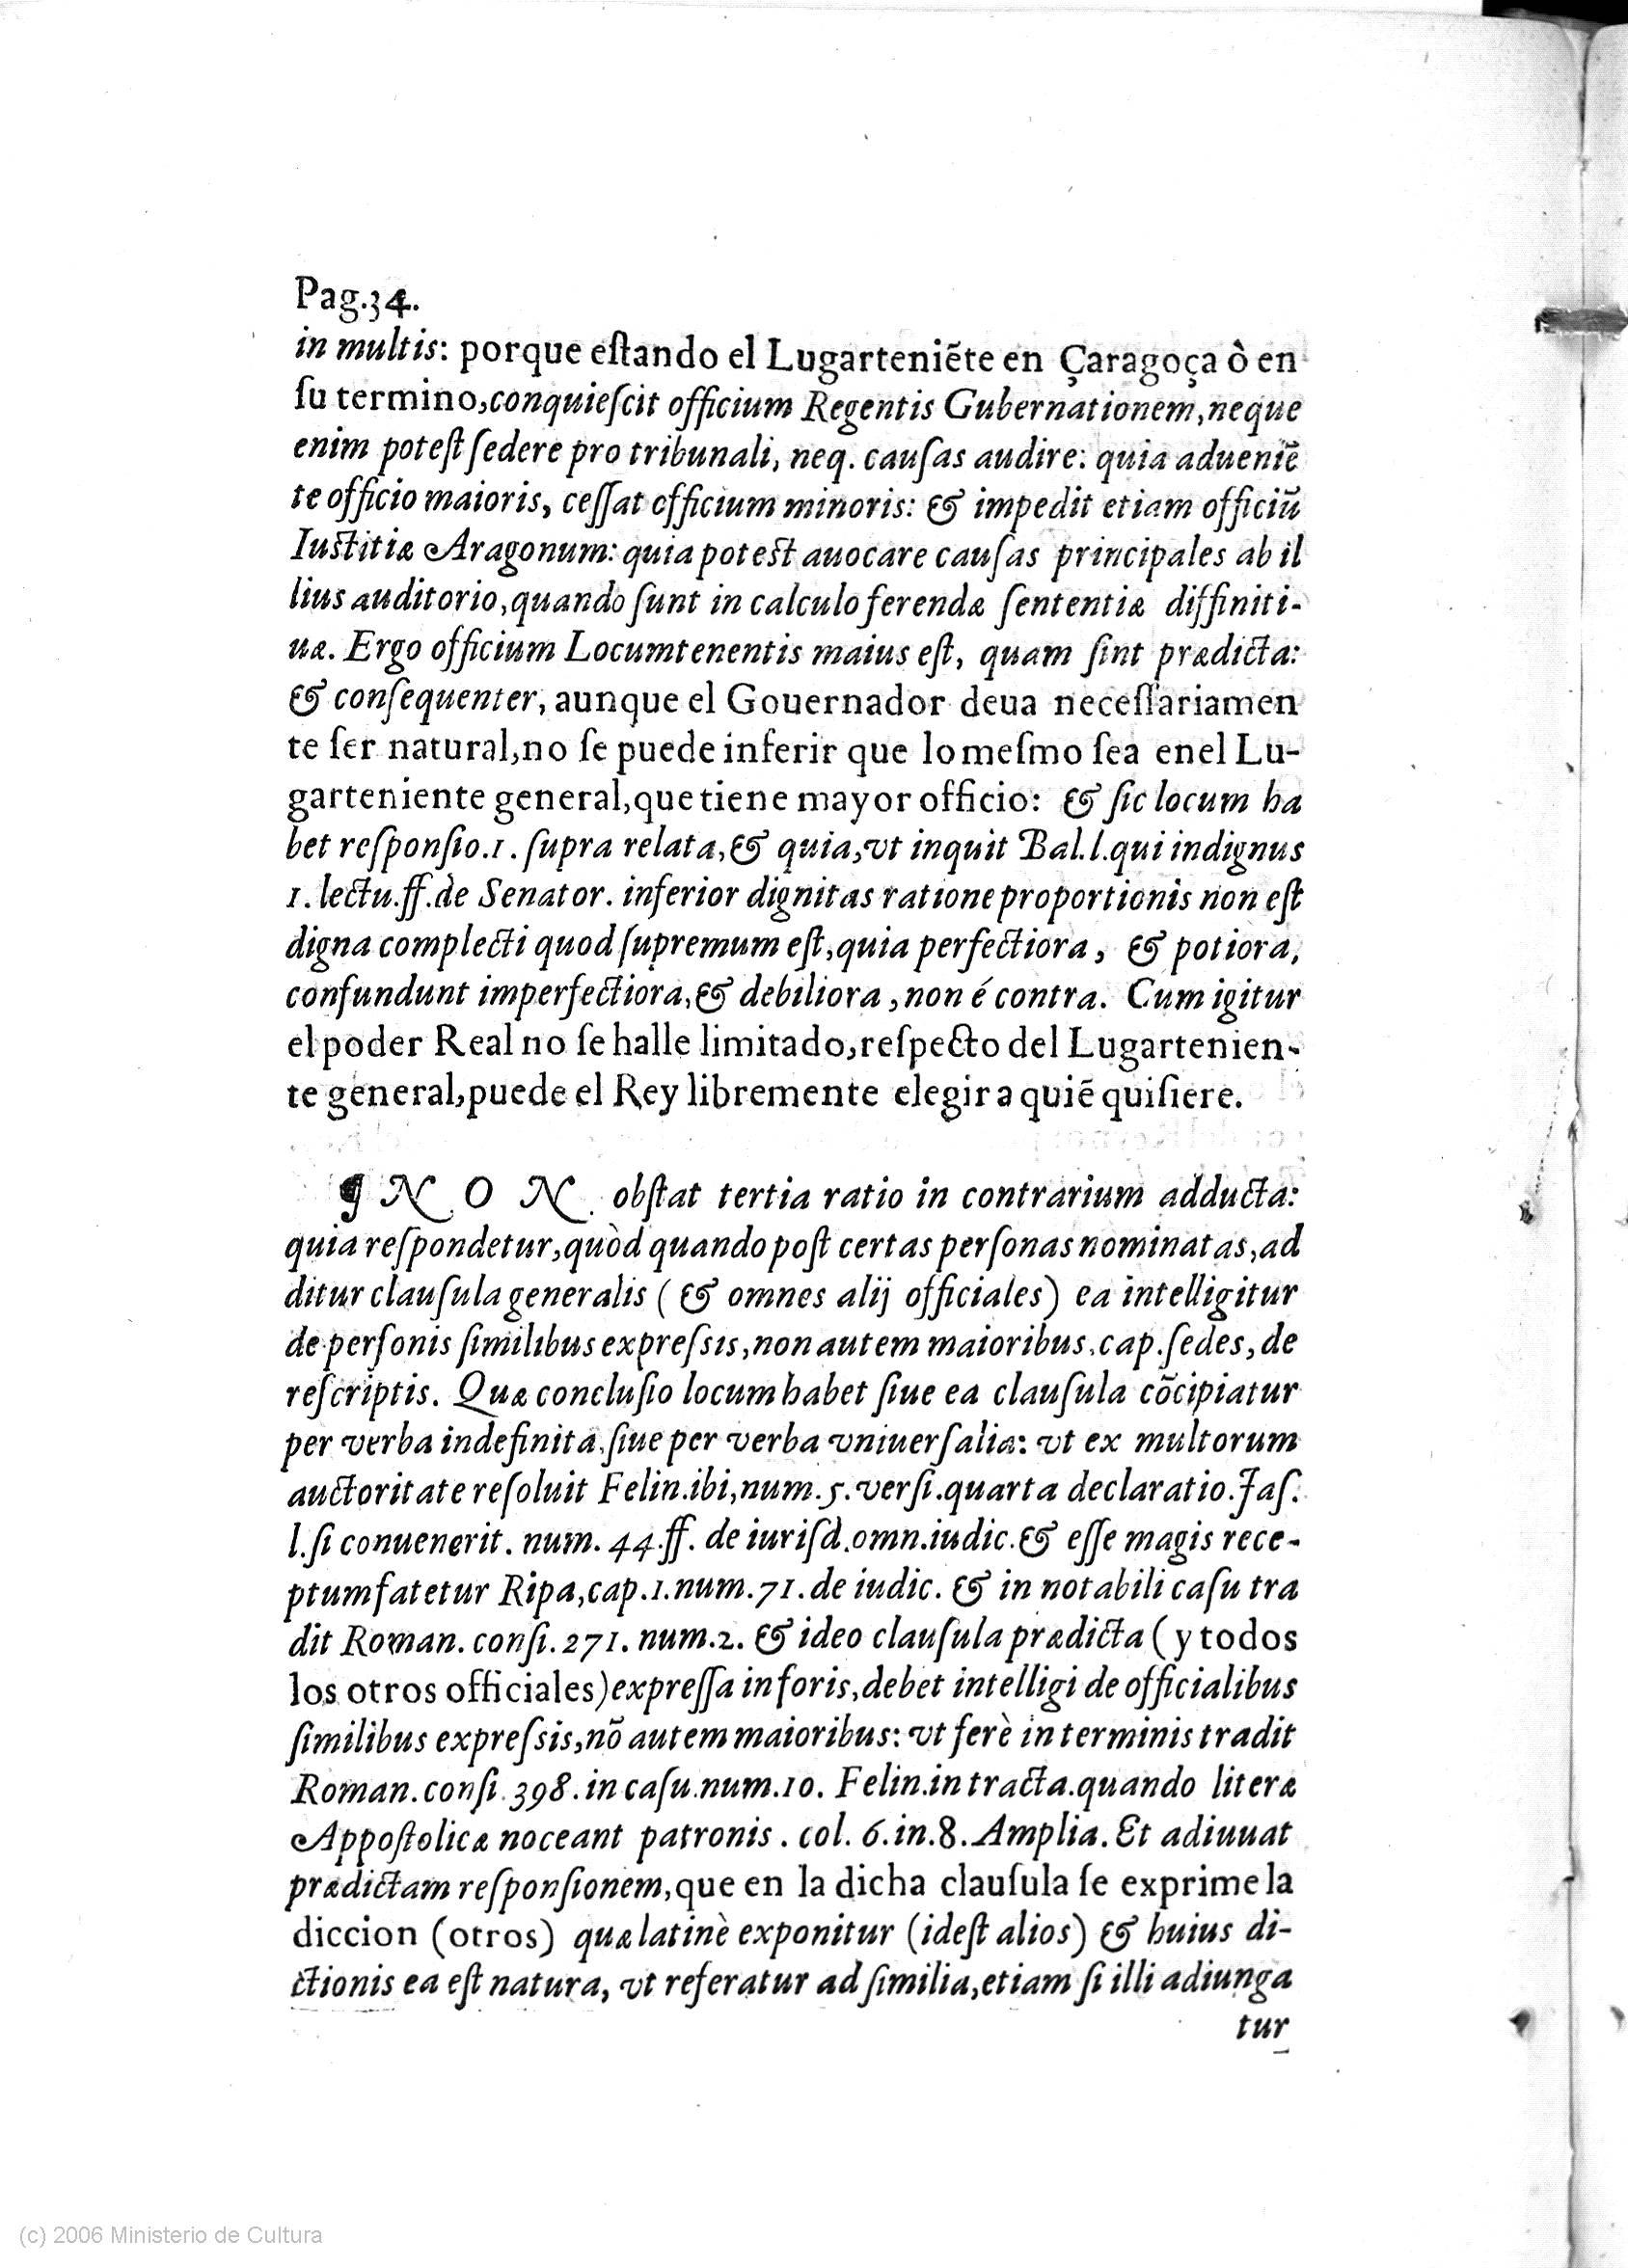 Pag.34.
in multis: porque eſtando el Lugarteniẽte en Çaragoça ò en
ſu termino,conquieſcit officium Regentis Gubernationem,neque
enim poteſt ſedere pro tribunali, neq. cauſas audire: quia adueniẽ
te officio maioris, ceſſat officium minoris: & impedit etiam officiũ
Iuſtitiæ Aragonum: quia poteſt auocare cauſas principales ab il
lius auditorio,quando ſunt in calculo ferendæ ſententiæ diffiniti-
uæ. Ergo officium Locumtenentis maius eſt, quam ſint prædicta:
& conſequenter, aunque el Gouernador deua neceſſariamen
te ſer natural,no ſe puede inferir que lo meſmo ſea enel Lu-
garteniente general,que tiene mayor officio: & ſic locum ha
bet reſponſio.1. ſupra relata,& quia,vt inquit Bal.l.qui indignus
1.lectu.ff.de Senator. inferior dignitas ratione proportionis non eſt
digna complecti quod ſupremum eſt,quia perfectiora, & potiora,
confundunt imperfectiora,& debiliora,non é contra. Cum igitur
el poder Real no ſe halle limitado,reſpecto del Lugartenien-
te general,puede el Rey libremente elegir a quiẽ quiſiere.
¶ N O N obſtat tertia ratio in contrarium adducta:
quia reſpondetur,quòd quando poſt certas perſonas nominatas,ad
ditur clauſula generalis ( & omnes alij officiales) ea intelligitur
de perſonis ſimilibus expreſsis,non autem maioribus.cap.ſedes,de
reſcriptis. Quæ concluſio locum habet ſiue ea clauſula cõcipiatur
per verba indefinita,ſiue per verba vniuerſalia: vt ex multorum
auctoritate reſoluit Felin.ibi,num.5.verſi.quarta declaratio.Jaſ.
l.ſi conuenerit. num. 44.ff. de iuriſd.omn.iudic.& eſſe magis rece-
ptum fatetur Ripa,cap.1.num.71.de iudic. & in notabili caſu tra
dit Roman. conſi.271. num.2. & ideo clauſula prædicta ( y todos
los otros officiales)expreſſa in foris,debet intelligi de officialibus
ſimilibus expreſsis,nõ autem maioribus: vt ferè in terminis tradit
Roman.conſi.398.in caſu.num.10. Felin.in tracta.quando literæ
Appoſtolicæ noceant patronis. col. 6.in.8.Amplia.Et adiuuat
prædictam reſponſionem,que en la dicha clauſula ſe exprime la
diccion (otros) quæ latinè exponitur (ideſt alios) & huius di-
ctionis ea eſt natura, vt referatur ad ſimilia,etiam ſi illi adiunga
tur
(c) 2006 Ministerio de Cultura